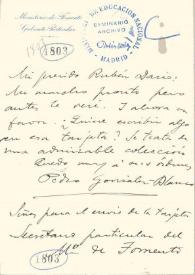 Ministerio de Fomento
Gabinete Particular
1803
MIN. DE EDUCACION NACIONAL
SEMINARIO
ARCHIVO
MADRID
Mi querido Rubén Darío:
Me marcho pronto pero
antes le veré. Y ahora un
favor. ¿Quiere escribir algo
en esa tarjeta? Se trata de
una admirable colección
Quedo muy a sus órdenes
Pedro González-Blanco
Señas para el envío de la tarjeta
Secretario particular del
de Fomento
1803